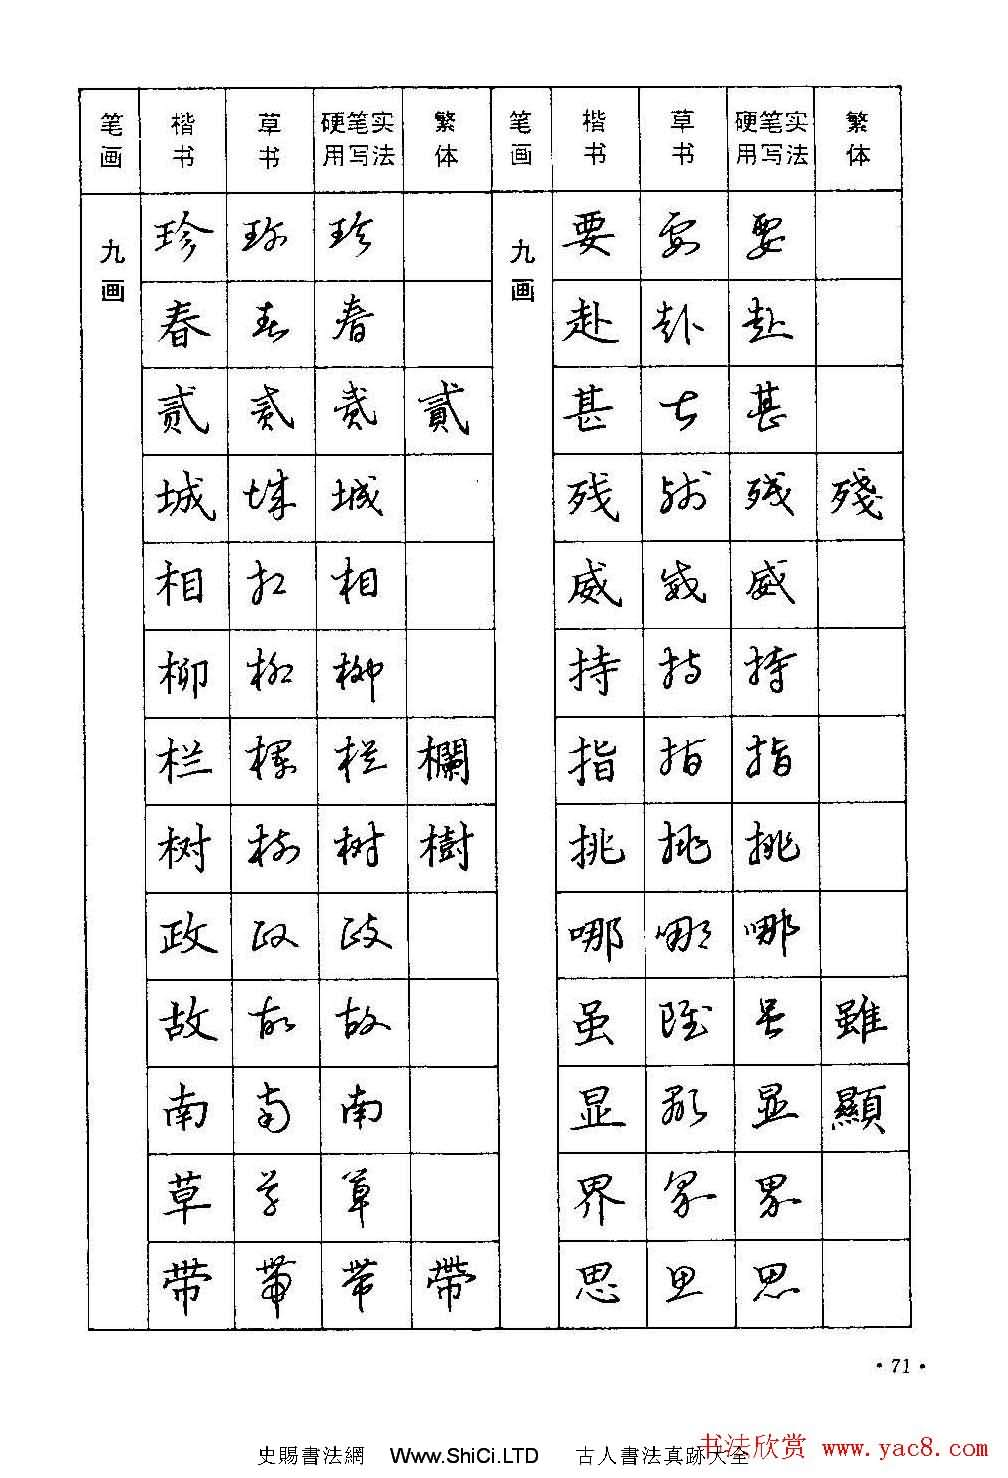 笔画 楷书 草书 硬笔实用写法 繁体 笔画 楷书 草书 硬笔实用写法 繁体
九画 珍 珍 珍 九画 要 要 要
春 春 春 赴 赴 赴
贰 贰 贰 貳 甚 甚 甚
城 城 城 残 残 残 殘
相 相 相 威 威 威
柳 柳 柳 持 持 持
栏 栏 栏 欄 指 指 指
树 树 树 樹 挑 挑 挑
政 政 政 哪 哪 哪
故 故 故 虽 雖 虽 雖
南 南 南 显 显 显 顯
草 草 草 界 界 界
带 带 带 帶 思 思 思
·71·
史賜書法網 Www.ShiCi.LTD 古人書法真跡大全
书法欣赏 www.yac8.com